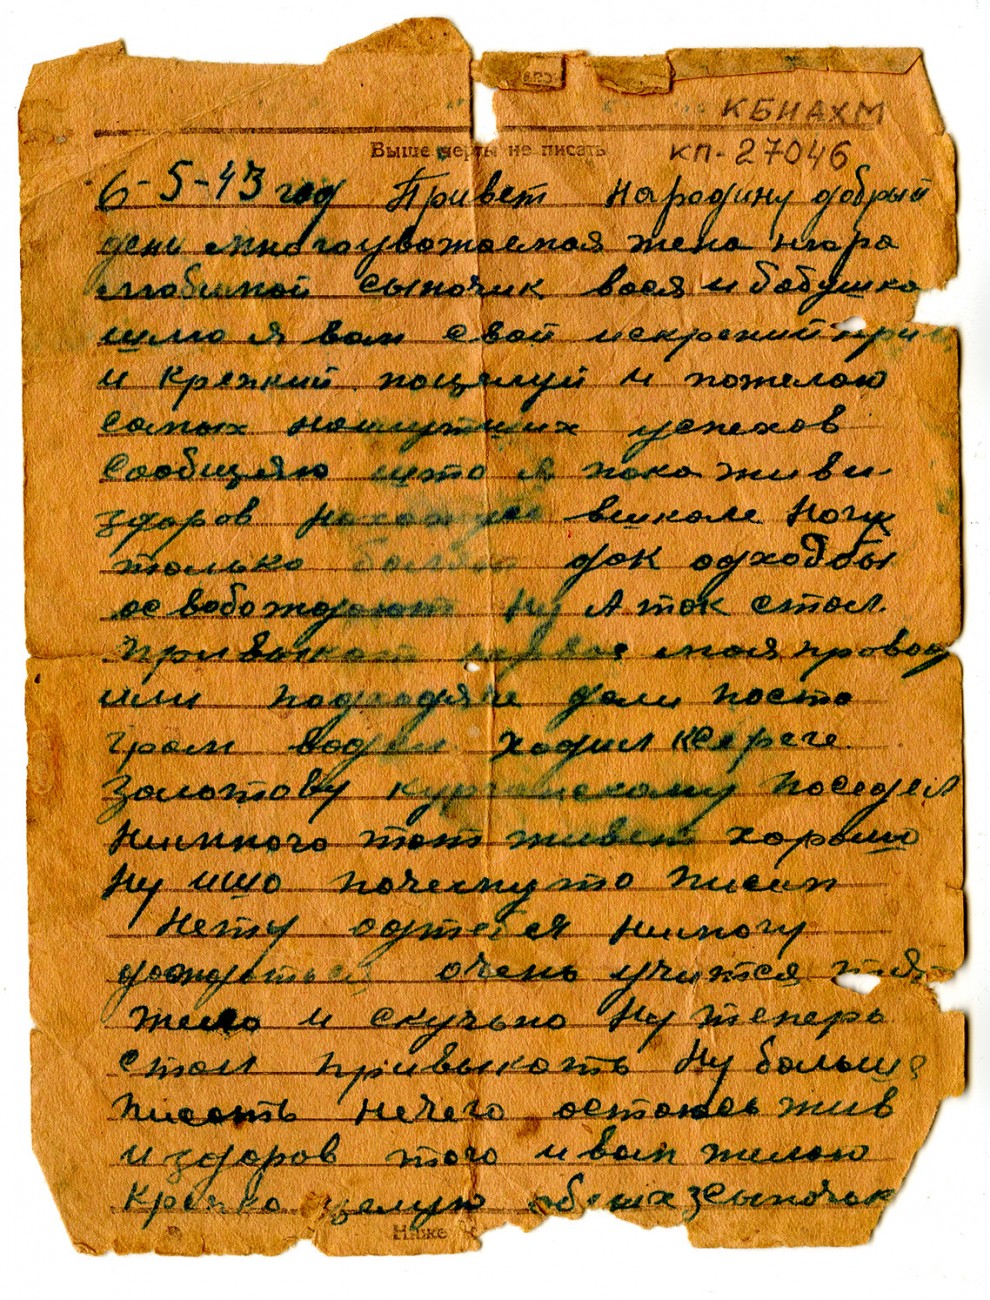 КБНАХМ
Выше черты не писать
КП-27046
6-5-43 год Привет Народину добрый
день многоуважаемая жена нюра
сыночик вася и бабушка
шлю я вам свой искрений
и крепкий поцилуй и пожелаю
самых наилутших успехов
сообщяю што я пока живи
здоров нахожусь вшколе Ногу
только болят док одход бы
освобождают Ну А так стал
Привыкат моя провод
или дали посто
грам ходил ксереге
Золотову Курганскому поседел
нимного тот живет хорошо
Ну ишо почемуто писем
Нету одтебя нимогу
дождаться очень учится
жело и скучьно Ну теперь
стал привыкоть Ну больше
писоть нечего остаюсь жив
и здоров того и вам желаю
крепко целую сыночик
Ниже